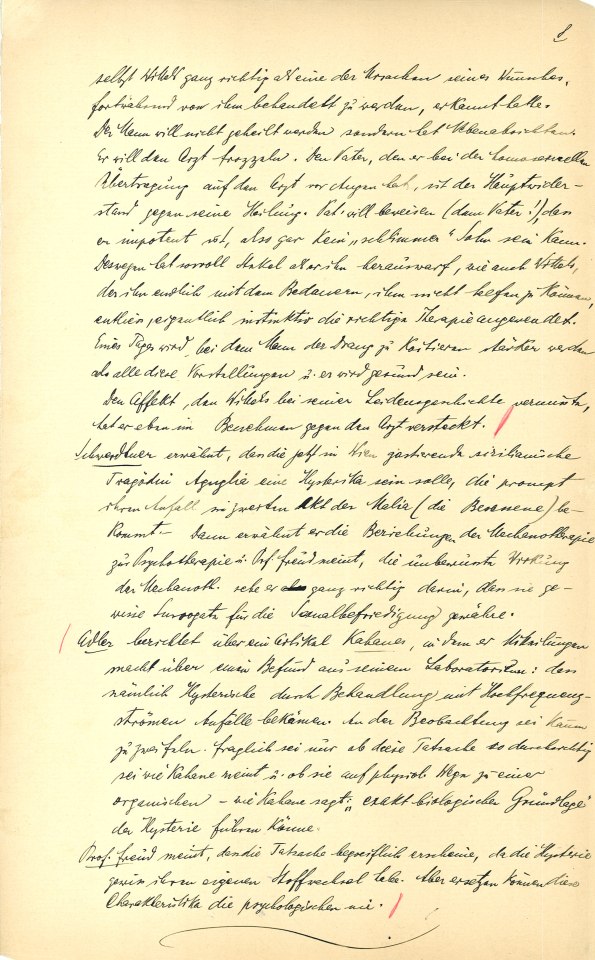 8
selbst Wittels ganz richtig als eine der Ursachen seines Wunsches,
fortwährend von ihm behandelt zu werden, erkannt hatte.
Der Mann will nicht geheilt werden sondern hat Nebenabsichten.
Er will den Arzt frozzeln. Den Vater, den er bei der homosexuellen
Übertragung auf den Arzt vor Augen hat, ist der Hauptwider-
stand gegen seine Heilung. Pat. will beweisen (dem Vater!) dass
er impotent ist, also gar kein „schlimmer" Sohn sein kann.
Deswegen hat sowohl Stekel als er ihn herauswarf, wie auch Wittels,
der ihn endlich mit dem Bedauern, ihm nicht helfen zu können,
entliess, eigentlich instinktiv die richtige Therapie angewendet.
Eines Tages wird, bei dem Mann der Drang zu koitieren stärker werden
als alle diese Vorstellungen u. er wird gesund sein.
Den Affekt, den Wittels bei seiner Leidensgeschichte vermisste,
hat er eben im Benehmen gegen den Arzt versteckt.
Schwerdtner erwähnt, dass die jetzt in Wien gastierende sizilianische
Tragödin Aguglia eine Hysterika sein solle, die prompt
ihren Anfall im zweiten Akt der Malia (die Besessene) be-
kommt. — Dann erwähnt er die Beziehungen der Mechanotherapie
zu Psychotherapie u. Prof. Freud meint, die unbewusste Wirkung
der Mechanoth. sehe er ganz richtig darin, dass sie ge-
wisse Surrogate für die Sexualbefriedigung gewähre.
Adler berichtet über ein Artikel Kahanes, in dem er Mitteilungen
macht über einen Befund aus seinem Laboratorium: dass
nämlich Hysterische durch Behandlung mit Hochfrequenz-
strömen Anfälle bekämen. An der Beobachtung sei kaum
zu zweifeln. fraglich sei nur ob diese Tatsache so durchsichtig
sei wie Kahane meint u. ob sie auf physiol. Wege zu einer
organischen — wie Kahane sagt: „exakt biologischen Grundlage"
der Hysterie führen könne.
Prof. Freud meint, dass die Tatsache begreiflich erscheine, da die Hysterie
gewiss ihren eigenen Stoffwechsel habe. Aber ersetzen können diese
Charakteristika die psychologischen nie.